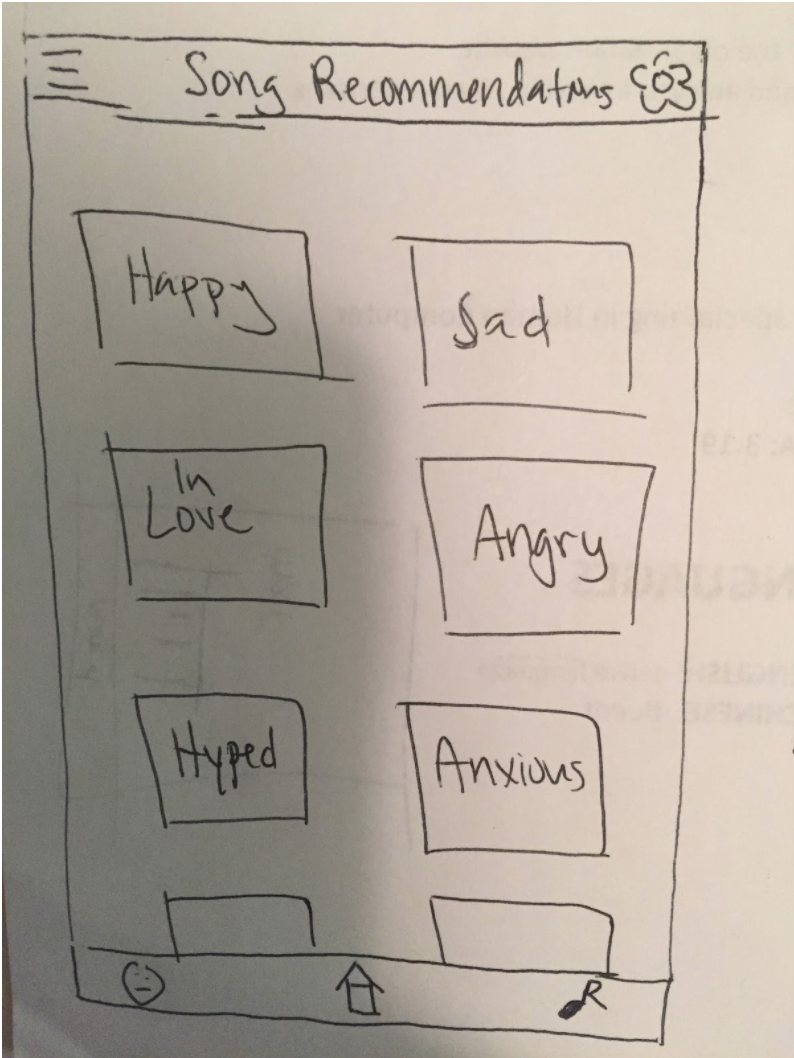 Song Recommendations
Happy
Sad
In
Love
Angry
Hyped
Anxious
R